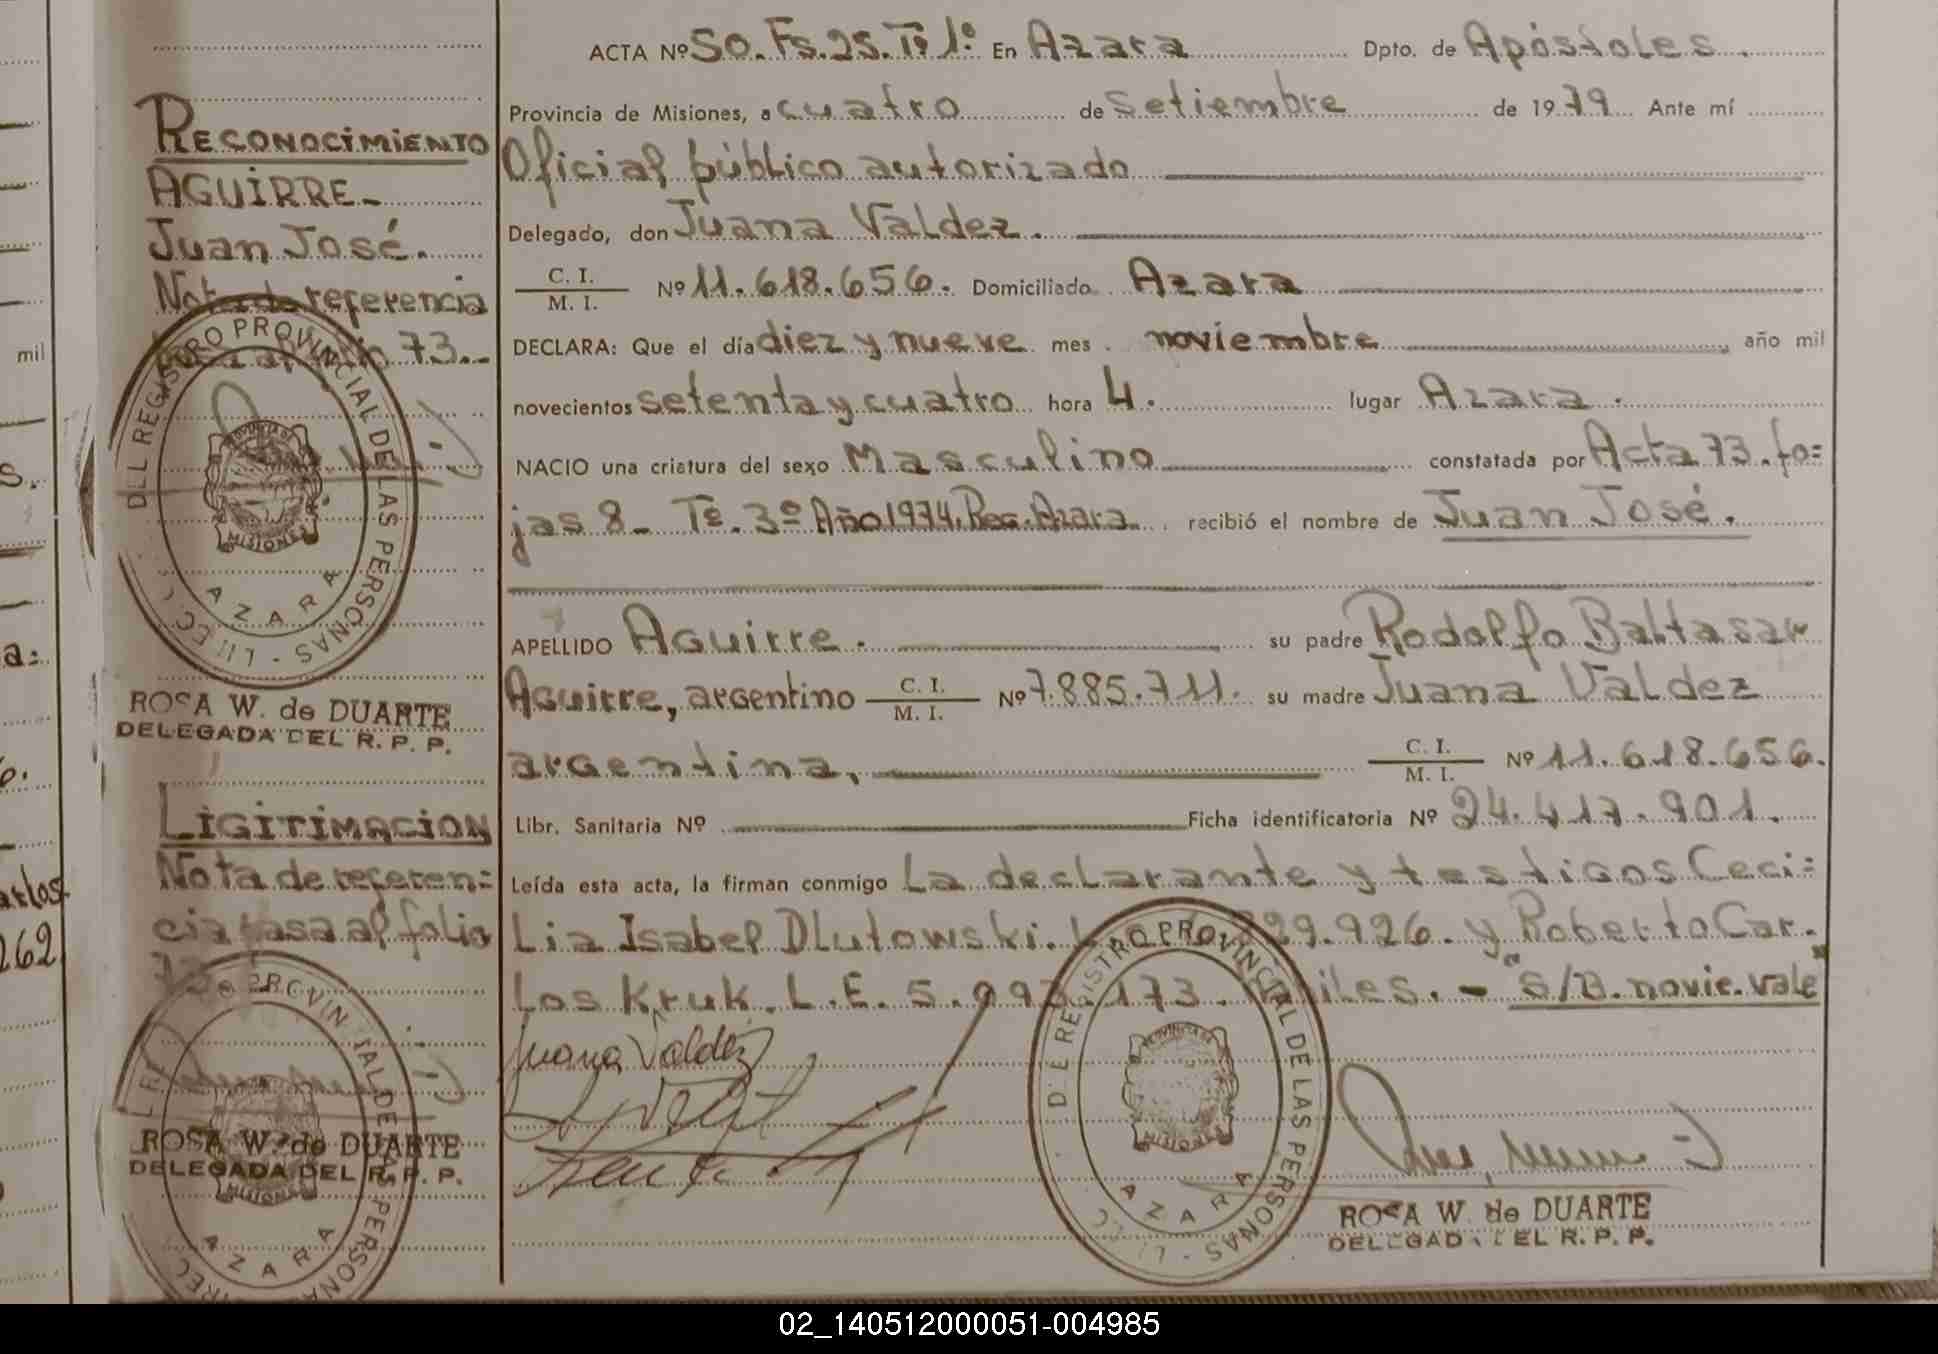 RECONOCIMIENTO
AGUIRRE-
Juan José.
Nota de referencia
73.-
DEL REGISTRO PROVINCIAL DE LAS PERSONAS
PROVINCIA DE
MISIONES
AZARA
ROSA W. de DUARTE
DELEGADA DEL R. P. P.
LIGITIMACION
Nota de referen=
cia pasa al folio
73
PROVINCIAL DE LAS PERSONAS
MISIONES
AZARA
ROSA W. de DUARTE
DELEGADA DEL R. P. P.
ACTA Nº 50. Fs. 25. Tº 1º En Azara Dpto. de Apóstoles.
Provincia de Misiones, a cuatro de Setiembre de 1979 Ante mí
Oficial público autorizado
Delegado, don Juana Valdez.
C. I.
M. I. Nº 11.618.656. Domiciliado Azara
DECLARA: Que el día diez y nueve mes noviembre año mil
novecientos setenta y cuatro hora 4. lugar Azara.
NACIO una criatura del sexo Masculino constatada por Acta 73. fo=
jas 8- Tº. 3º Año 1974. Reg. Azara recibió el nombre de Juan José.
APELLIDO Aguirre. su padre Rodolfo Baltasar
Aguirre, argentino C. I.
M. I. Nº 7.885.711. su madre Juana Valdez
argentina, C. I.
M. I. Nº 11.618.656.
Libr. Sanitaria Nº Ficha identificatoria Nº 24.417.901.
Leída esta acta, la firman conmigo La declarante y testigos Ceci=
lia Isabel Dlutowski. 29.926. y Roberto Car.
los Kruk. L.E. 5. 173. hábiles. - "S/B. novie. vale"
Juana Valdéz
REGISTRO PROVINCIAL DE LAS PERSONAS
MISIONES
AZARA
ROSA W. de DUARTE
DELEGADA DEL R. P. P.
mil
s.
a:
arlos
262
02_140512000051-004985